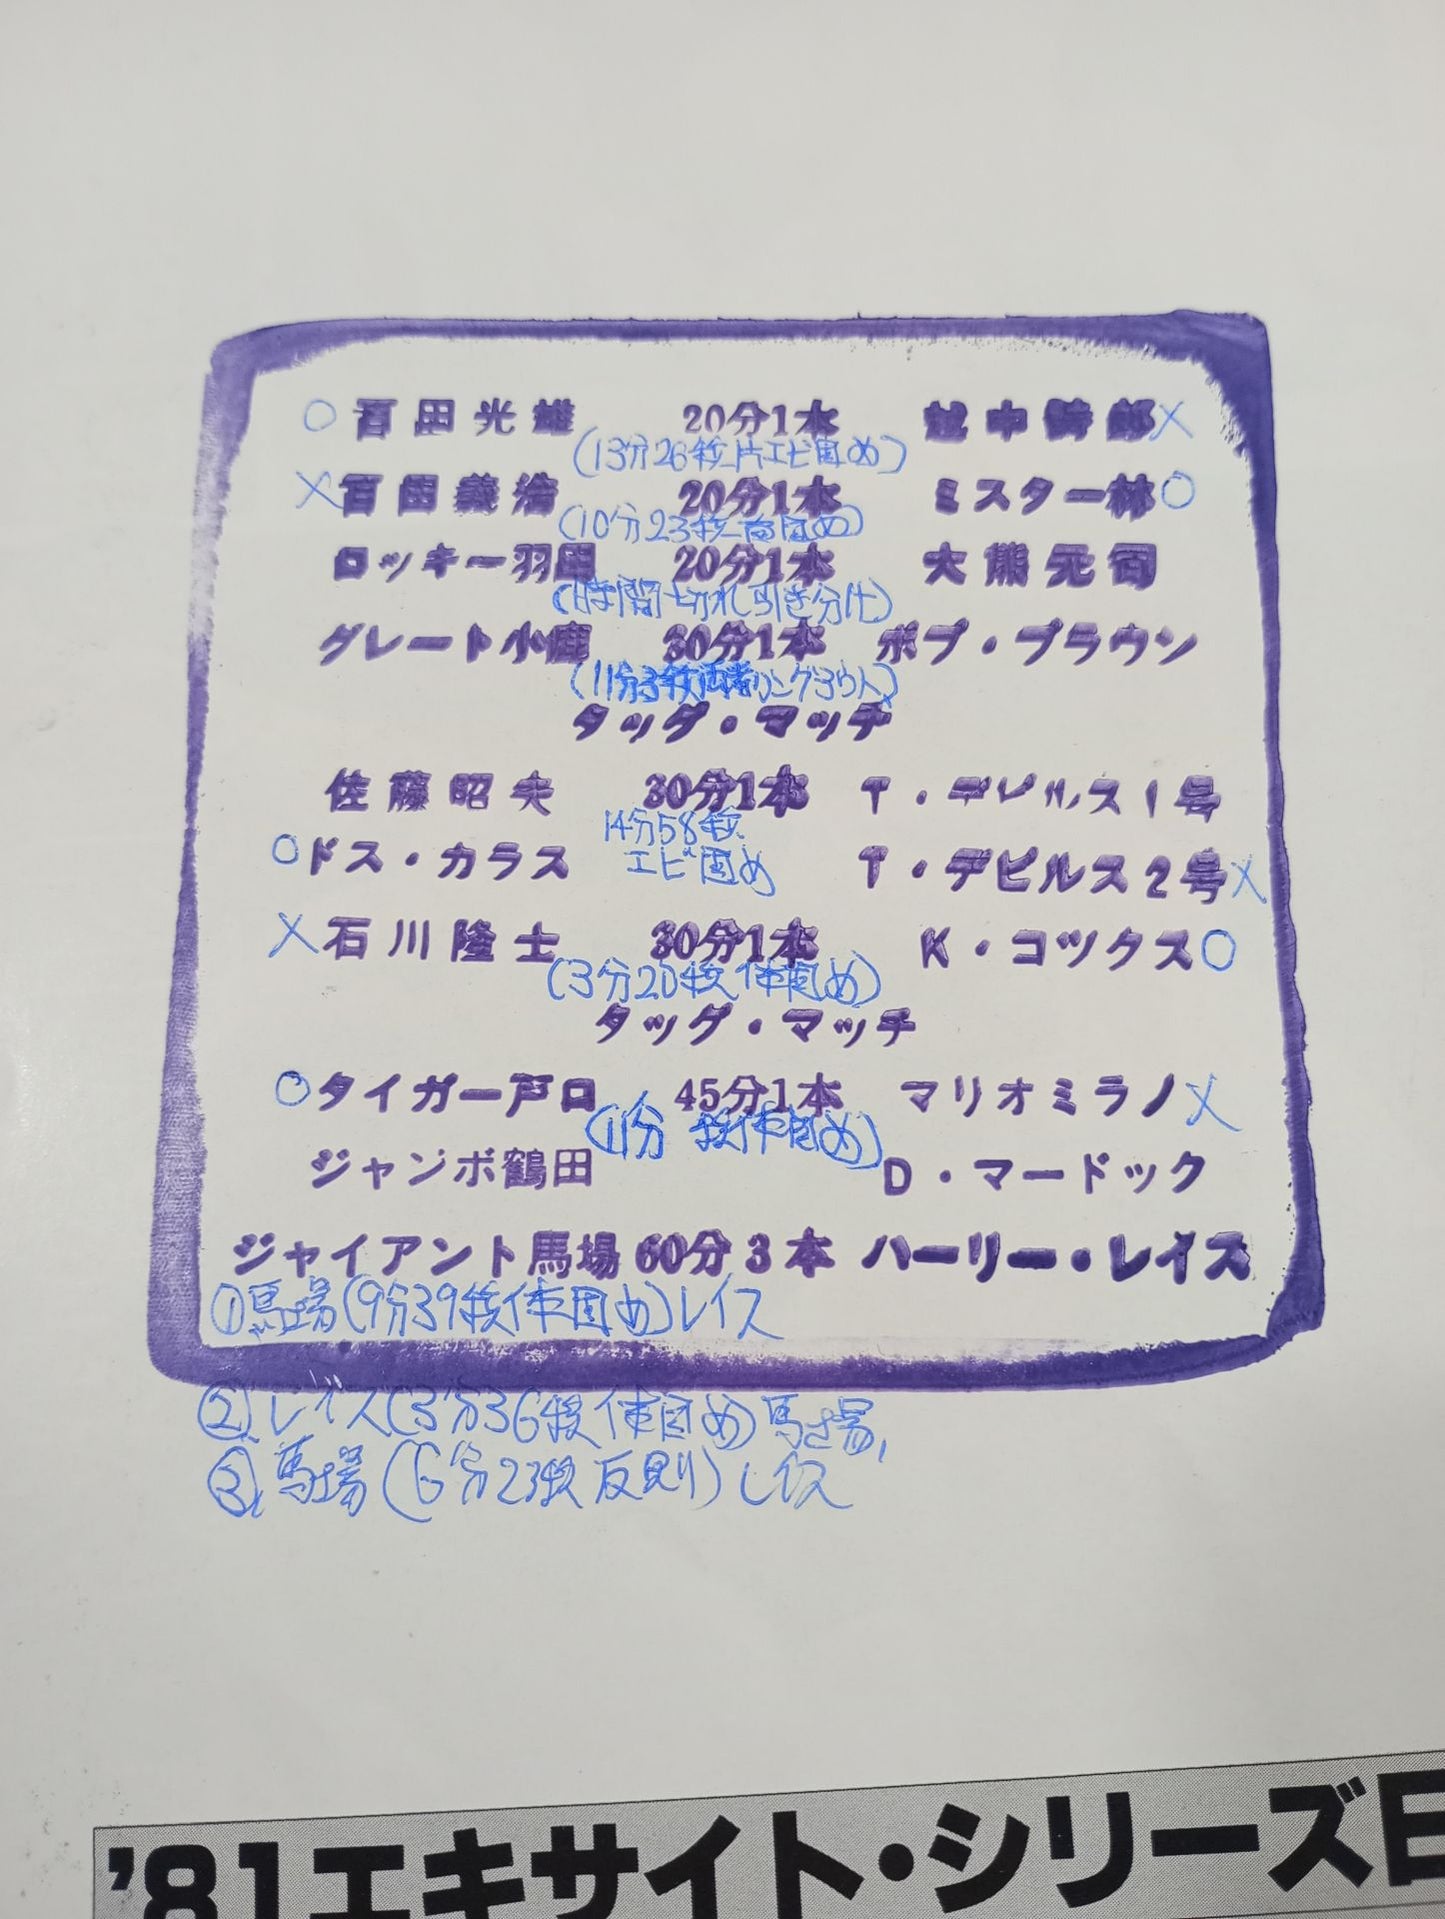 ○百田光雄 20分1本 越中詩郎×
(13分26秒片エビ固め)
×百田義浩 20分1本 ミスター林○
(10分23秒首固め)
ロッキー羽田 20分1本 大熊元司
(時間切れ引き分け)
グレート小鹿 30分1本 ボブ・ブラウン
(11分3秒両者リングアウト)
タッグ・マッチ
佐藤昭夫 30分1本 T・デビルス1号
14分58秒
○ドス・カラス T・デビルス2号×
エビ固め
×石川隆士 30分1本 K・コックス○
(3分20秒体固め)
タッグ・マッチ
○タイガー戸口 45分1本 マリオミラノ×
(11分 秒体固め)
ジャンボ鶴田 D・マードック
ジャイアント馬場 60分3本 ハーリー・レイス
①馬場(9分39秒体固め)レイス
②レイス(3分36秒体固め)馬場
③馬場(6分23秒反則)レイス
'81エキサイト・シリーズ日